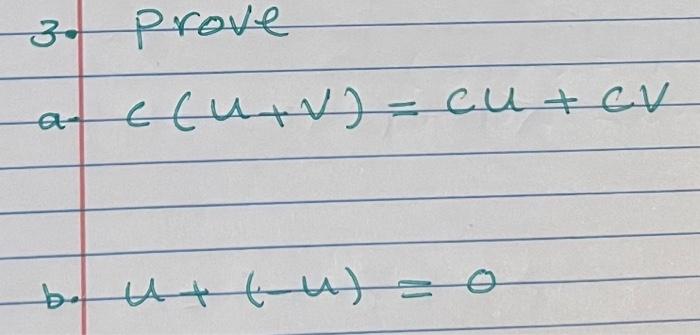 3. Prove
a- c(u+v) = cu + cv
b. u + (-u) = 0